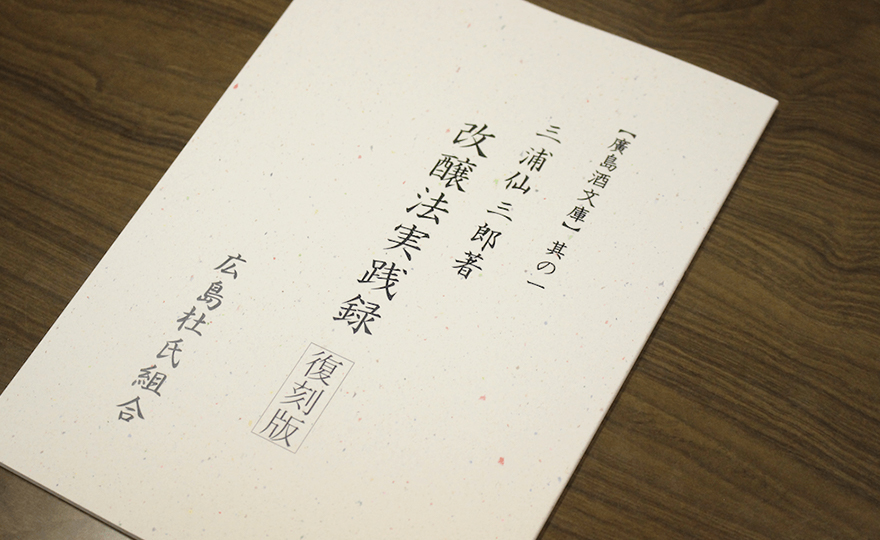 【廣島酒文庫】其の一
三浦仙三郎著
改醸法実践録
復刻版
広島杜氏組合